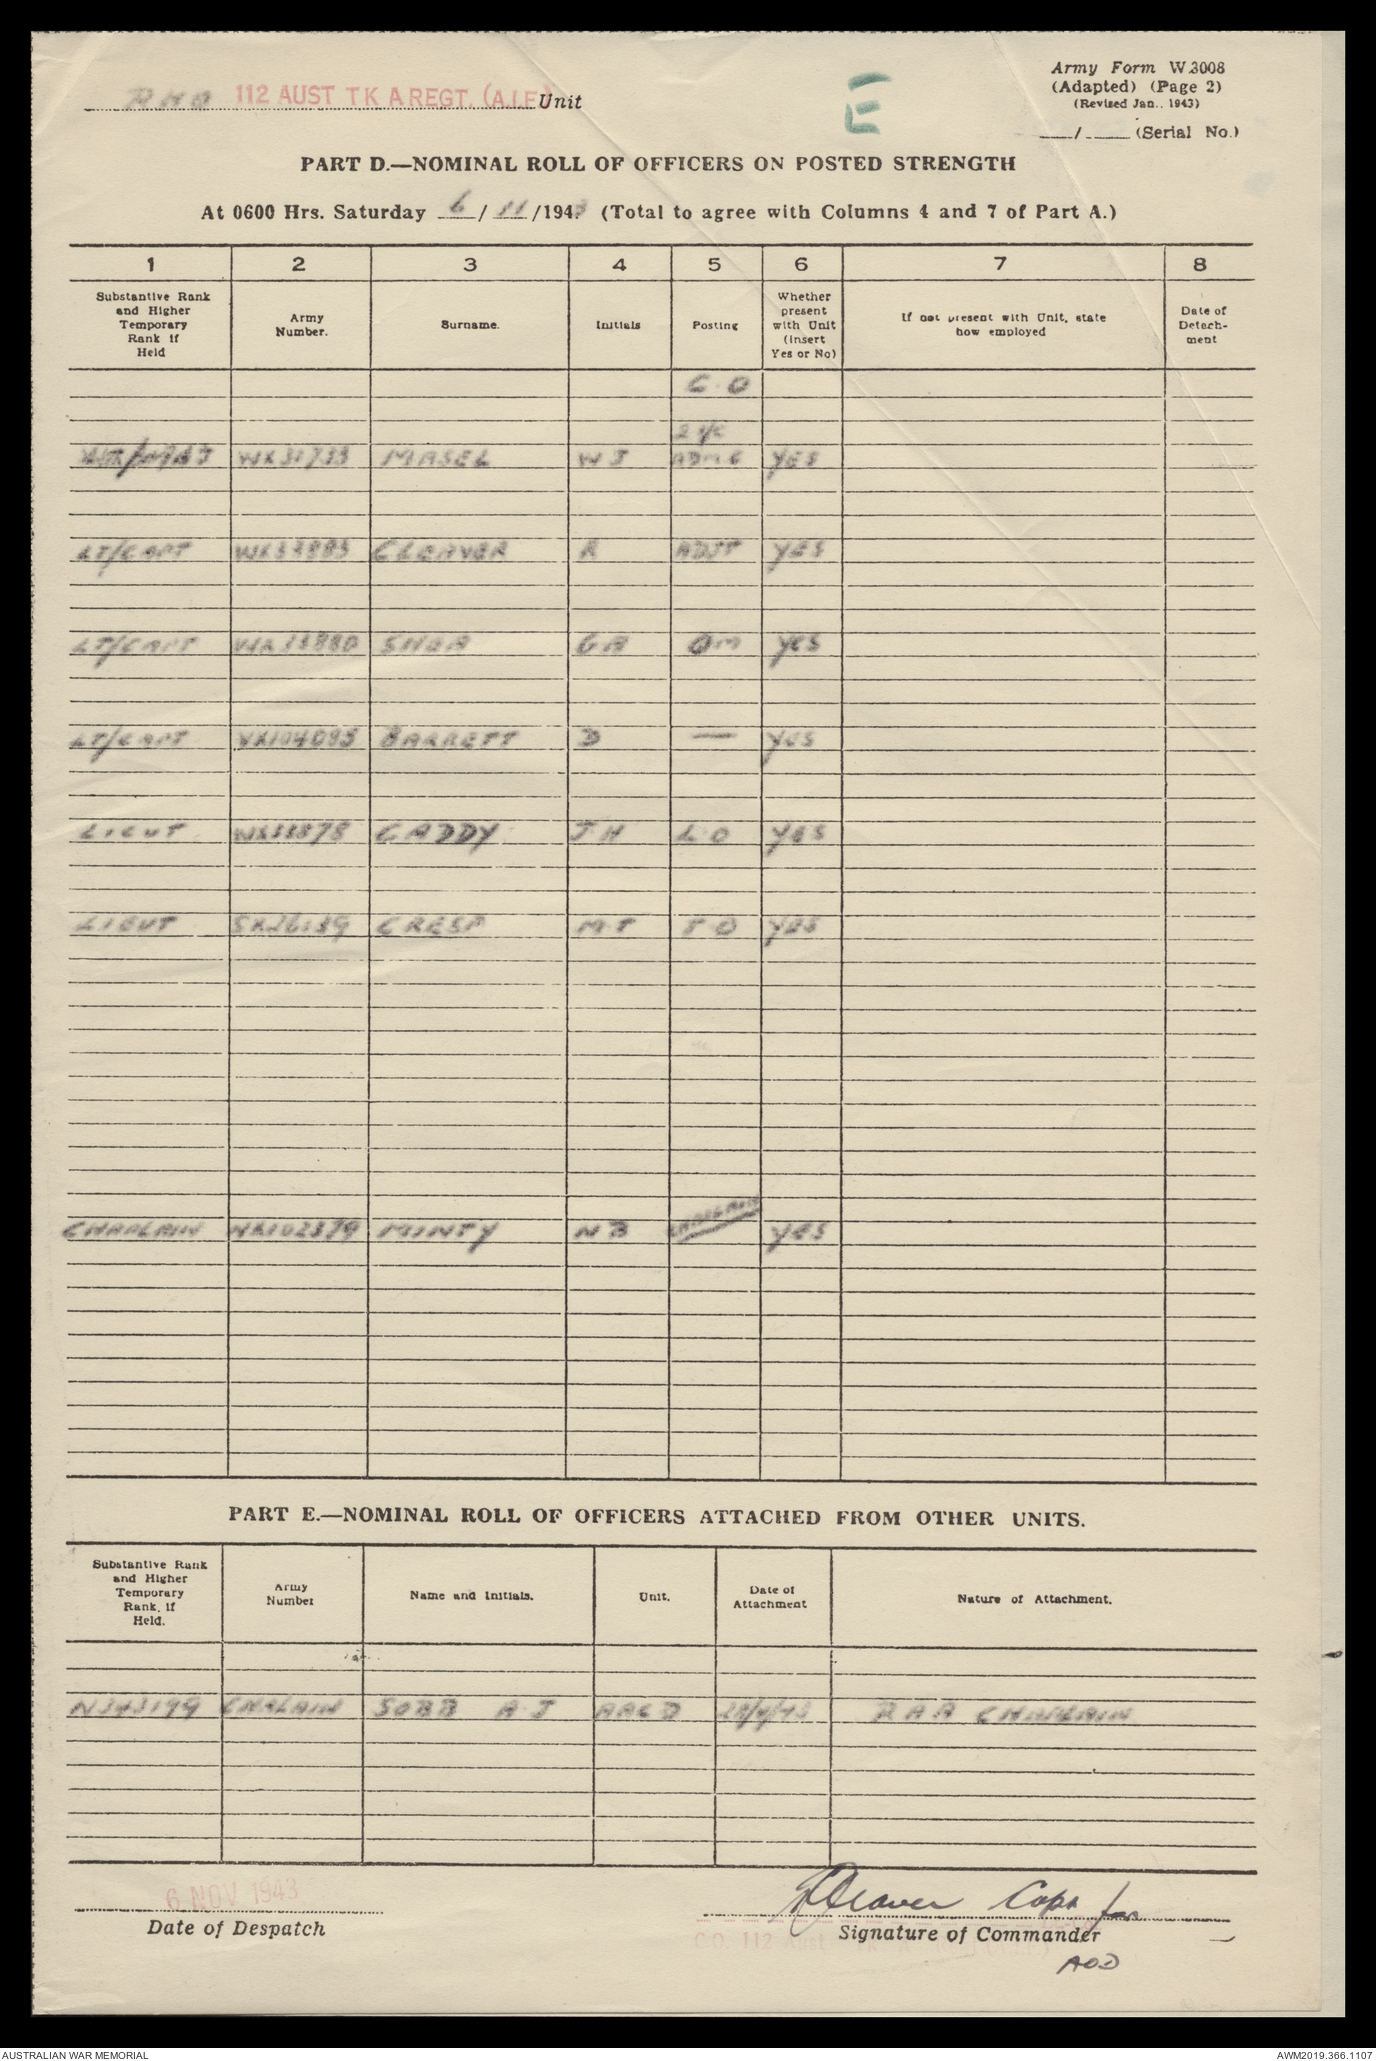 RHQ 112 AUST TK A REGT. (A.I.F.) Unit
E
Army Form W.3008
(Adapted) (Page 2)
(Revised Jan., 1943)
/ (Serial No.)
PART D.—NOMINAL ROLL OF OFFICERS ON POSTED STRENGTH
At 0600 Hrs. Saturday 6 / 11 /1943 (Total to agree with Columns 4 and 7 of Part A.)
1 2 3 4 5 6 7 8
Substantive Rank and Higher Temporary Rank if Held
Army Number.
Surname.
Initials
Posting
Whether present with Unit (insert Yes or No)
If not present with Unit, state how employed
Date of Detachment
C.O
2 i/c
MASEL W J YES
LT/CAPT CLEAVER R ADJT YES
LT/CAPT SHEA G A QM YES
LT/CAPT VX104095 BARRETT D — YES
LIEUT WX33878 CADDY J H L O YES
LIEUT SX26189 CRESP M T T O YES
CHAPLAIN MINTY N B CHAPLAIN YES
PART E.—NOMINAL ROLL OF OFFICERS ATTACHED FROM OTHER UNITS.
Substantive Rank and Higher Temporary Rank, if Held.
Army Number
Name and Initials.
Unit.
Date of Attachment
Nature of Attachment.
N343199 CHAPLAIN SOBB A J RAA CHAPLAIN
6 NOV 1943
Date of Despatch
R Cleaver Capt for
Signature of Commander
C.O. 112 Aust
AOD
AUSTRALIAN WAR MEMORIAL
AWM2019.366.1107